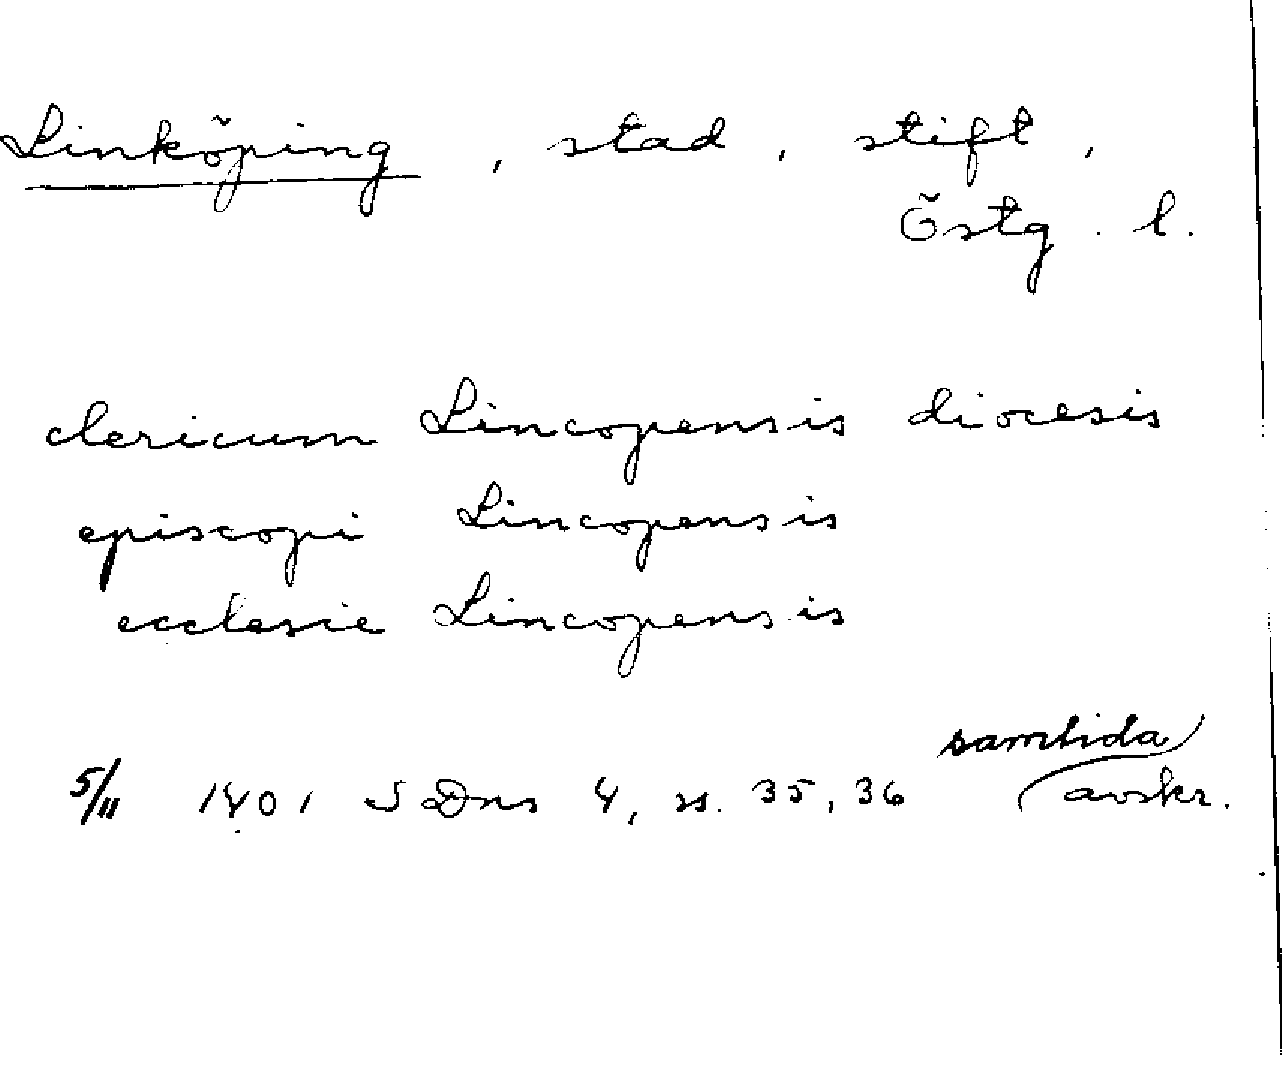 Linköping, stad, stift,
Östg. l.
clericum Lincopensis diocesis
episcopi Lincopensis
ecclesie Lincopensis
samtida
5/11 1401 SDns 4, s. 35, 36 avskr.